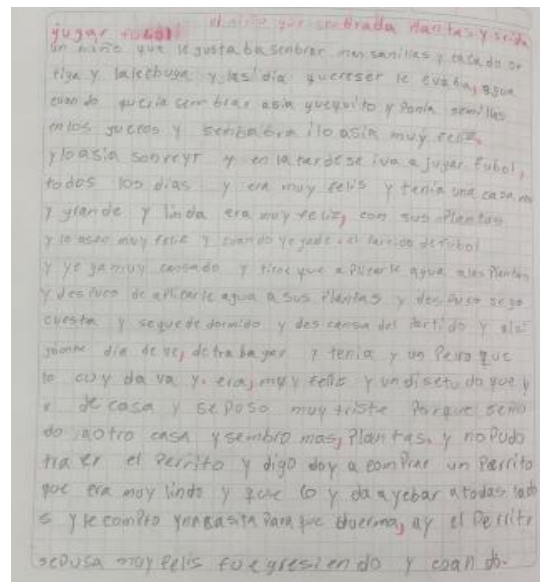 el niño que sembrada Plantas y se iba
jugar fubol
un niño que le gustaba senbrar mansanillas y
tiga y la lechuga y las dia que creser le evaba, agua
cuando queria sembrar asia guequito y Ponia semillas
en los guecos y senbabra i lo asia muy feliz,
y lo asia sonreyr y en la tarde se iva a jugar fubol,
todos los dias y era muy felis y tenia una casa
y grande y linda era muy feliz, con sus Plantas
y lo aseo muy feliz y cuando yegade el Partido de fubol
y yega muy cansado y tiene que aPlicarle agua a las Plantas
y des Pues de aplicarle agua a sus Plantas y des Pues se go
cuesta y se quede dormido y descansa del Partido y
giente dia de ve, de trabagar y tenia y un Pero que
lo cuy da va y era, muy feliz y un dia se tu do que
de casa y se Poso muy triste Porque se mo
do aotro casa y sembro mas, Plantas. y no Pudo
tra er el Perrito y digo doy a comPrar un Perrito
que era muy lindo y que lo y da a yebar a todas
s y le comPro yna casita Para que duerma, ay el Perrito
se Pusa muy felis fue gresiendo y cuan do.